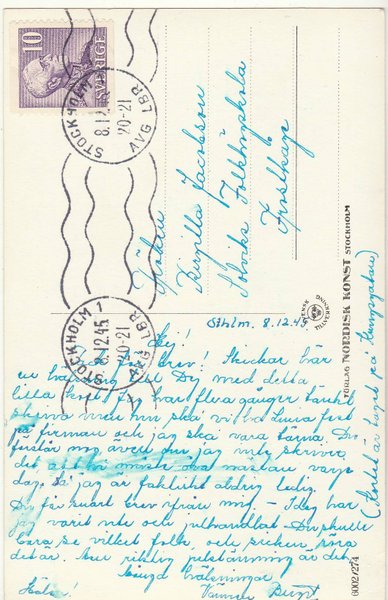 10
SVERIGE
STOCKHOLM
8.12.45
20-21
AVG LBR
Fröken
Birgitta Jacobsson
Solviks Folkhögskola
Frostkåge
STOCKHOLM 1
8.12.45
20-21
AVG LBR
SVENSK TILLVERKNING
FÖRLAG NORDISK KONST STOCKHOLM
6002/274
(Kortet är taget på Kungsgatan)
Sthlm. 8.12.45
Hej!
Tack för brev! Skickar här
en hälsning till Dig med detta
lilla kort. Jag har flera gånger tänkt
skriva men nu ska vi ha Lucia fest
på firman och jag ska vara tärna. Du
förstår nog även om jag inte skriver
det att vi måste öva nästan varje
dag. Så jag är faktiskt aldrig ledig.
Du får snart brev ifrån mig - Idag har
jag varit ute och julhandlat - Du skulle
bara se vilket folk och sicken röra
det är. Men riktig julstämning är det.
hälsningar
Vännen